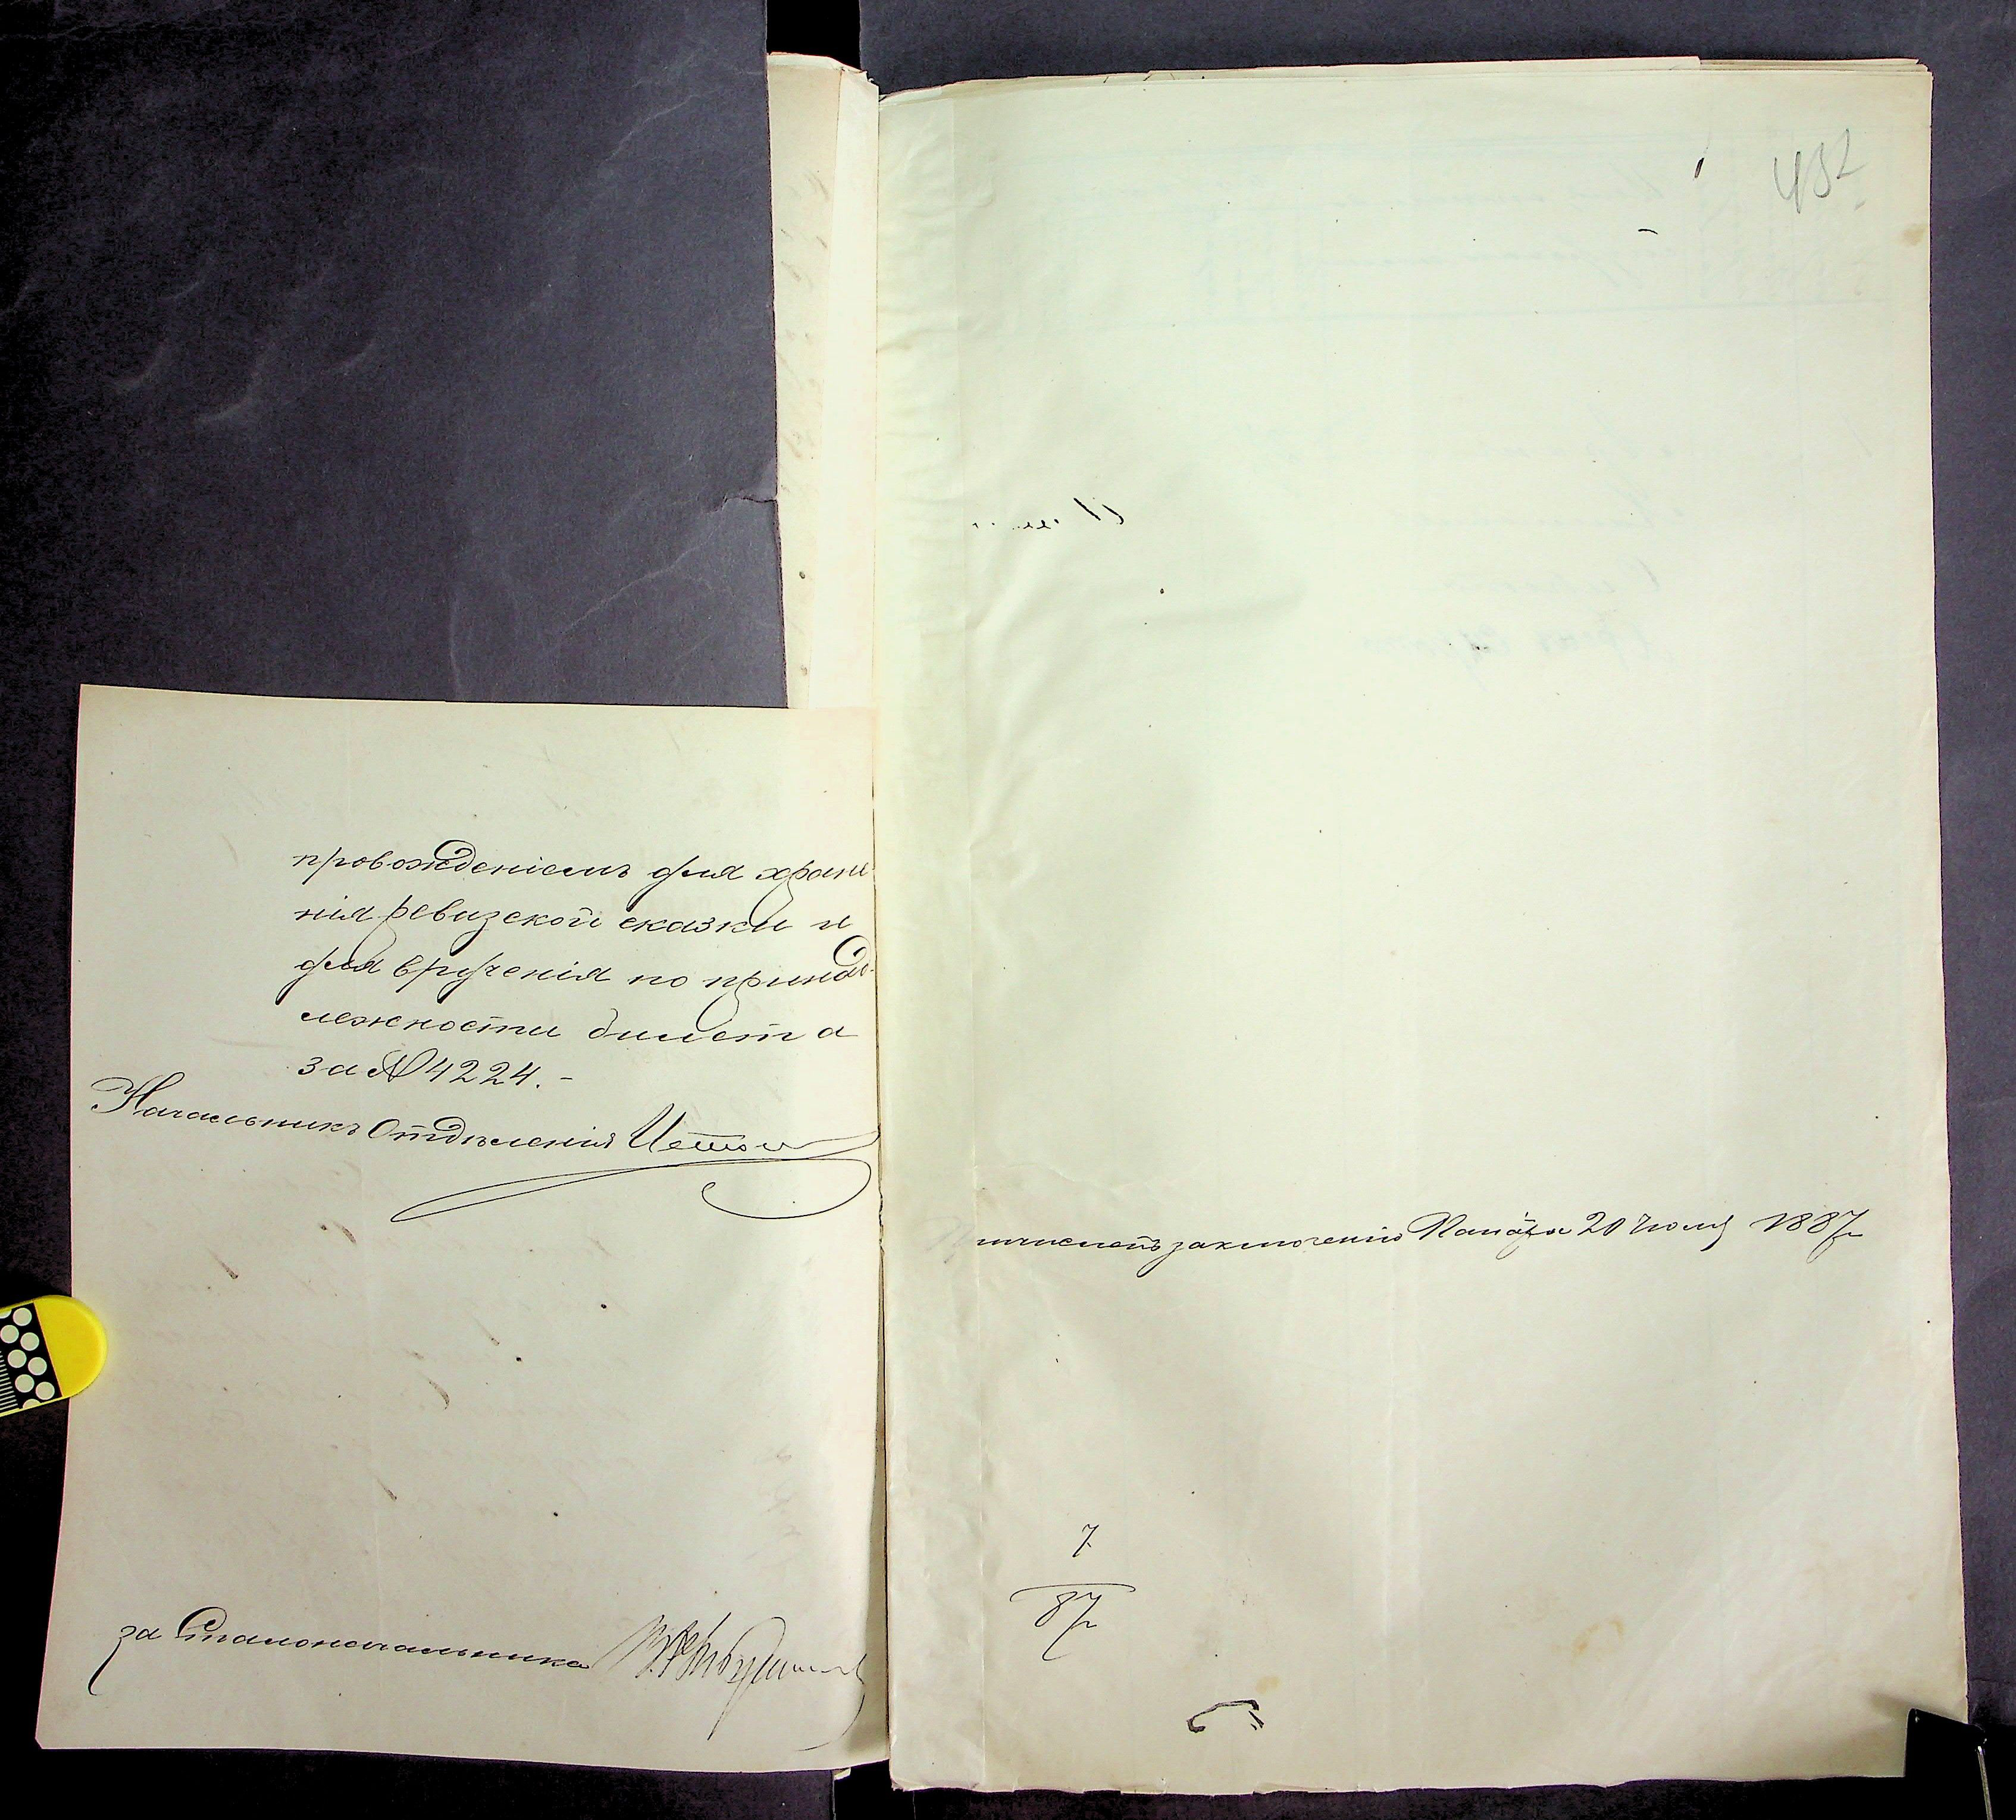 провожденіемъ для хране
нія ревизской сказки и
для врученія по принад-
лежности билета
за № 4224.-
Начальникъ Отдѣленія
за Столоначальника
432
заключенію 20 Іюля 1887 г
7
87 г